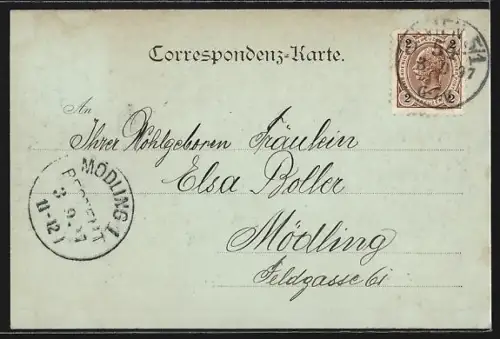 Correspondenz-Karte.
WIEN 5/1
2 2
2 2
An
Ihrer Wohlgeboren Fräulein
Elsa Boller
Mödling
Feldgasse 61
MÖDLING 1
3 9 97
11-12